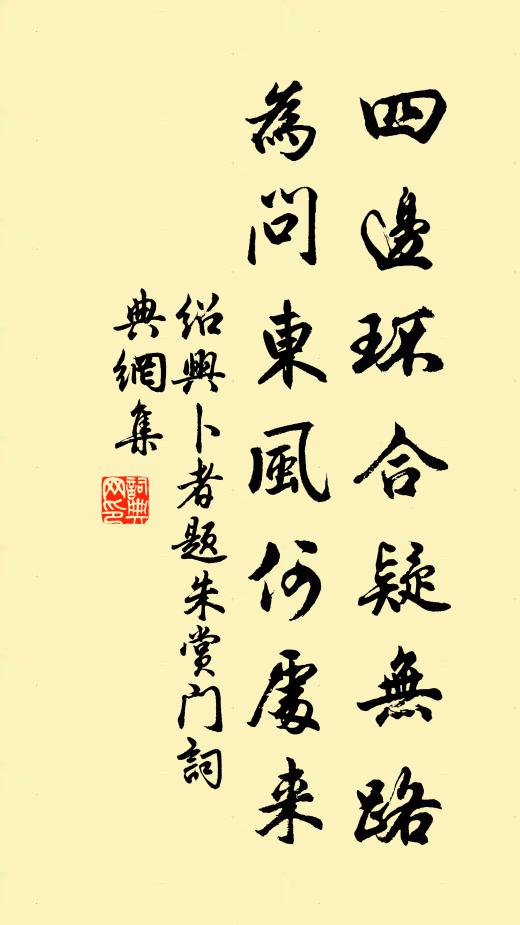 四邊環合疑無路
為問東風何處来
紹興卜者題朱賞門詞
典網集
詞典网印